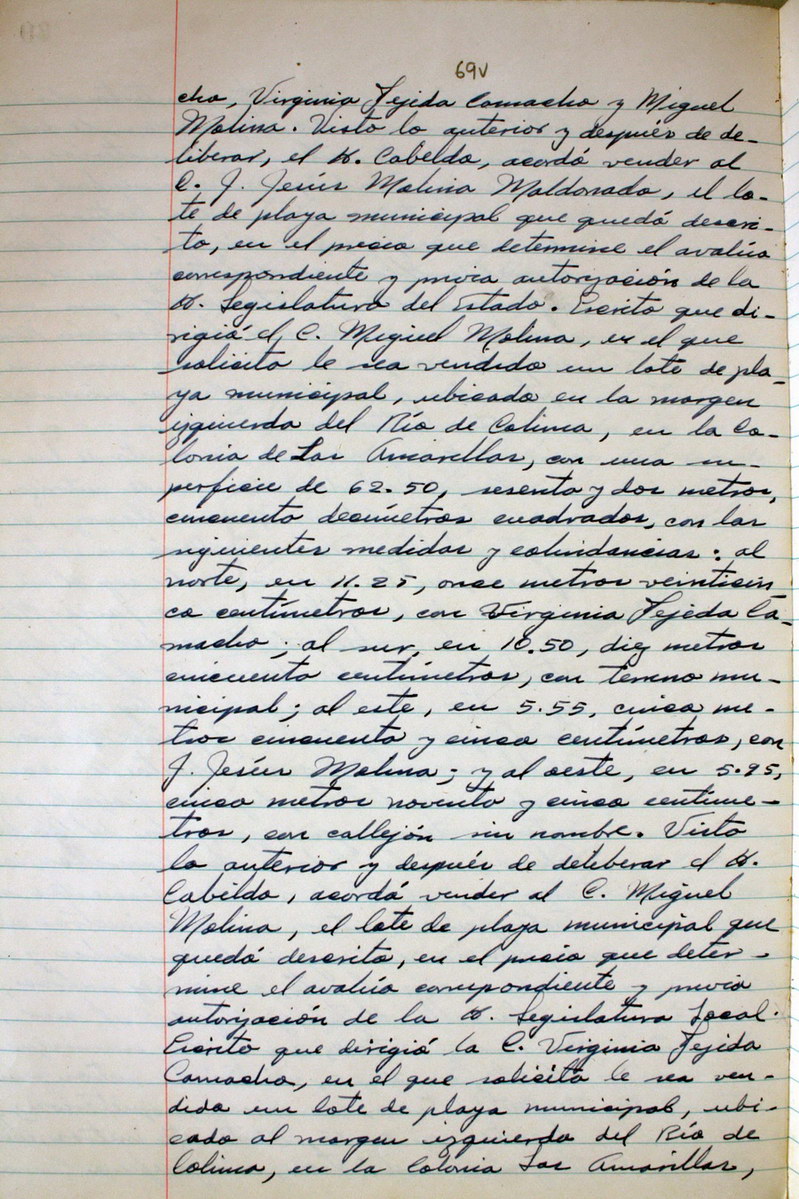 69V
cho, Virginia Tejida Camacho y Miguel
Molina. Visto lo anterior y después de de-
liberar, el H. Cabildo, acordó vender al
C. J. Jesús Molina Maldonado, el lo-
te de playa municipal que quedó descri-
to, en el precio que determine el avalúo
correspondiente y previa autorización de la
H. Legislatura del Estado. Escrito que di-
rigió el C. Miguel Molina, en el que
solicita le sea vendido un lote de pla-
ya municipal, ubicado en la margen
izquierda del Río de Colima, en la Co-
lonia de Las Amarillas, con una su-
perficie de 62.50, sesenta y dos metros,
cincuenta decímetros cuadrados, con las
siguientes medidas y colindancias: al
norte, en 11.25, once metros veinticin
co centímetros, con Virginia Tejeda Ca-
macho; al sur, en 10.50, diez metros
cincuenta centímetros, con terreno mu-
nicipal; al este, en 5.55, cinco me-
tros cincuenta y cinco centímetros, con
J. Jesús Molina; y al oeste, en 5.95,
cinco metros noventa y cinco centíme-
tros, con callejón sin nombre. Visto
lo anterior y después de deliberar el H.
Cabildo, acordó vender al C. Miguel
Molina, el lote de playa municipal que
quedó descrito, en el precio que deter-
mine el avalúo correspondiente y previa
autorización de la H. Legislatura Local.
Escrito que dirigió la C. Virginia Tejida
Camacho, en el que solicita le sea ven-
dido un lote de playa municipal, ubi-
cado al margen izquierdo del Río de
Colima, en la Colonia Las Amarillas,